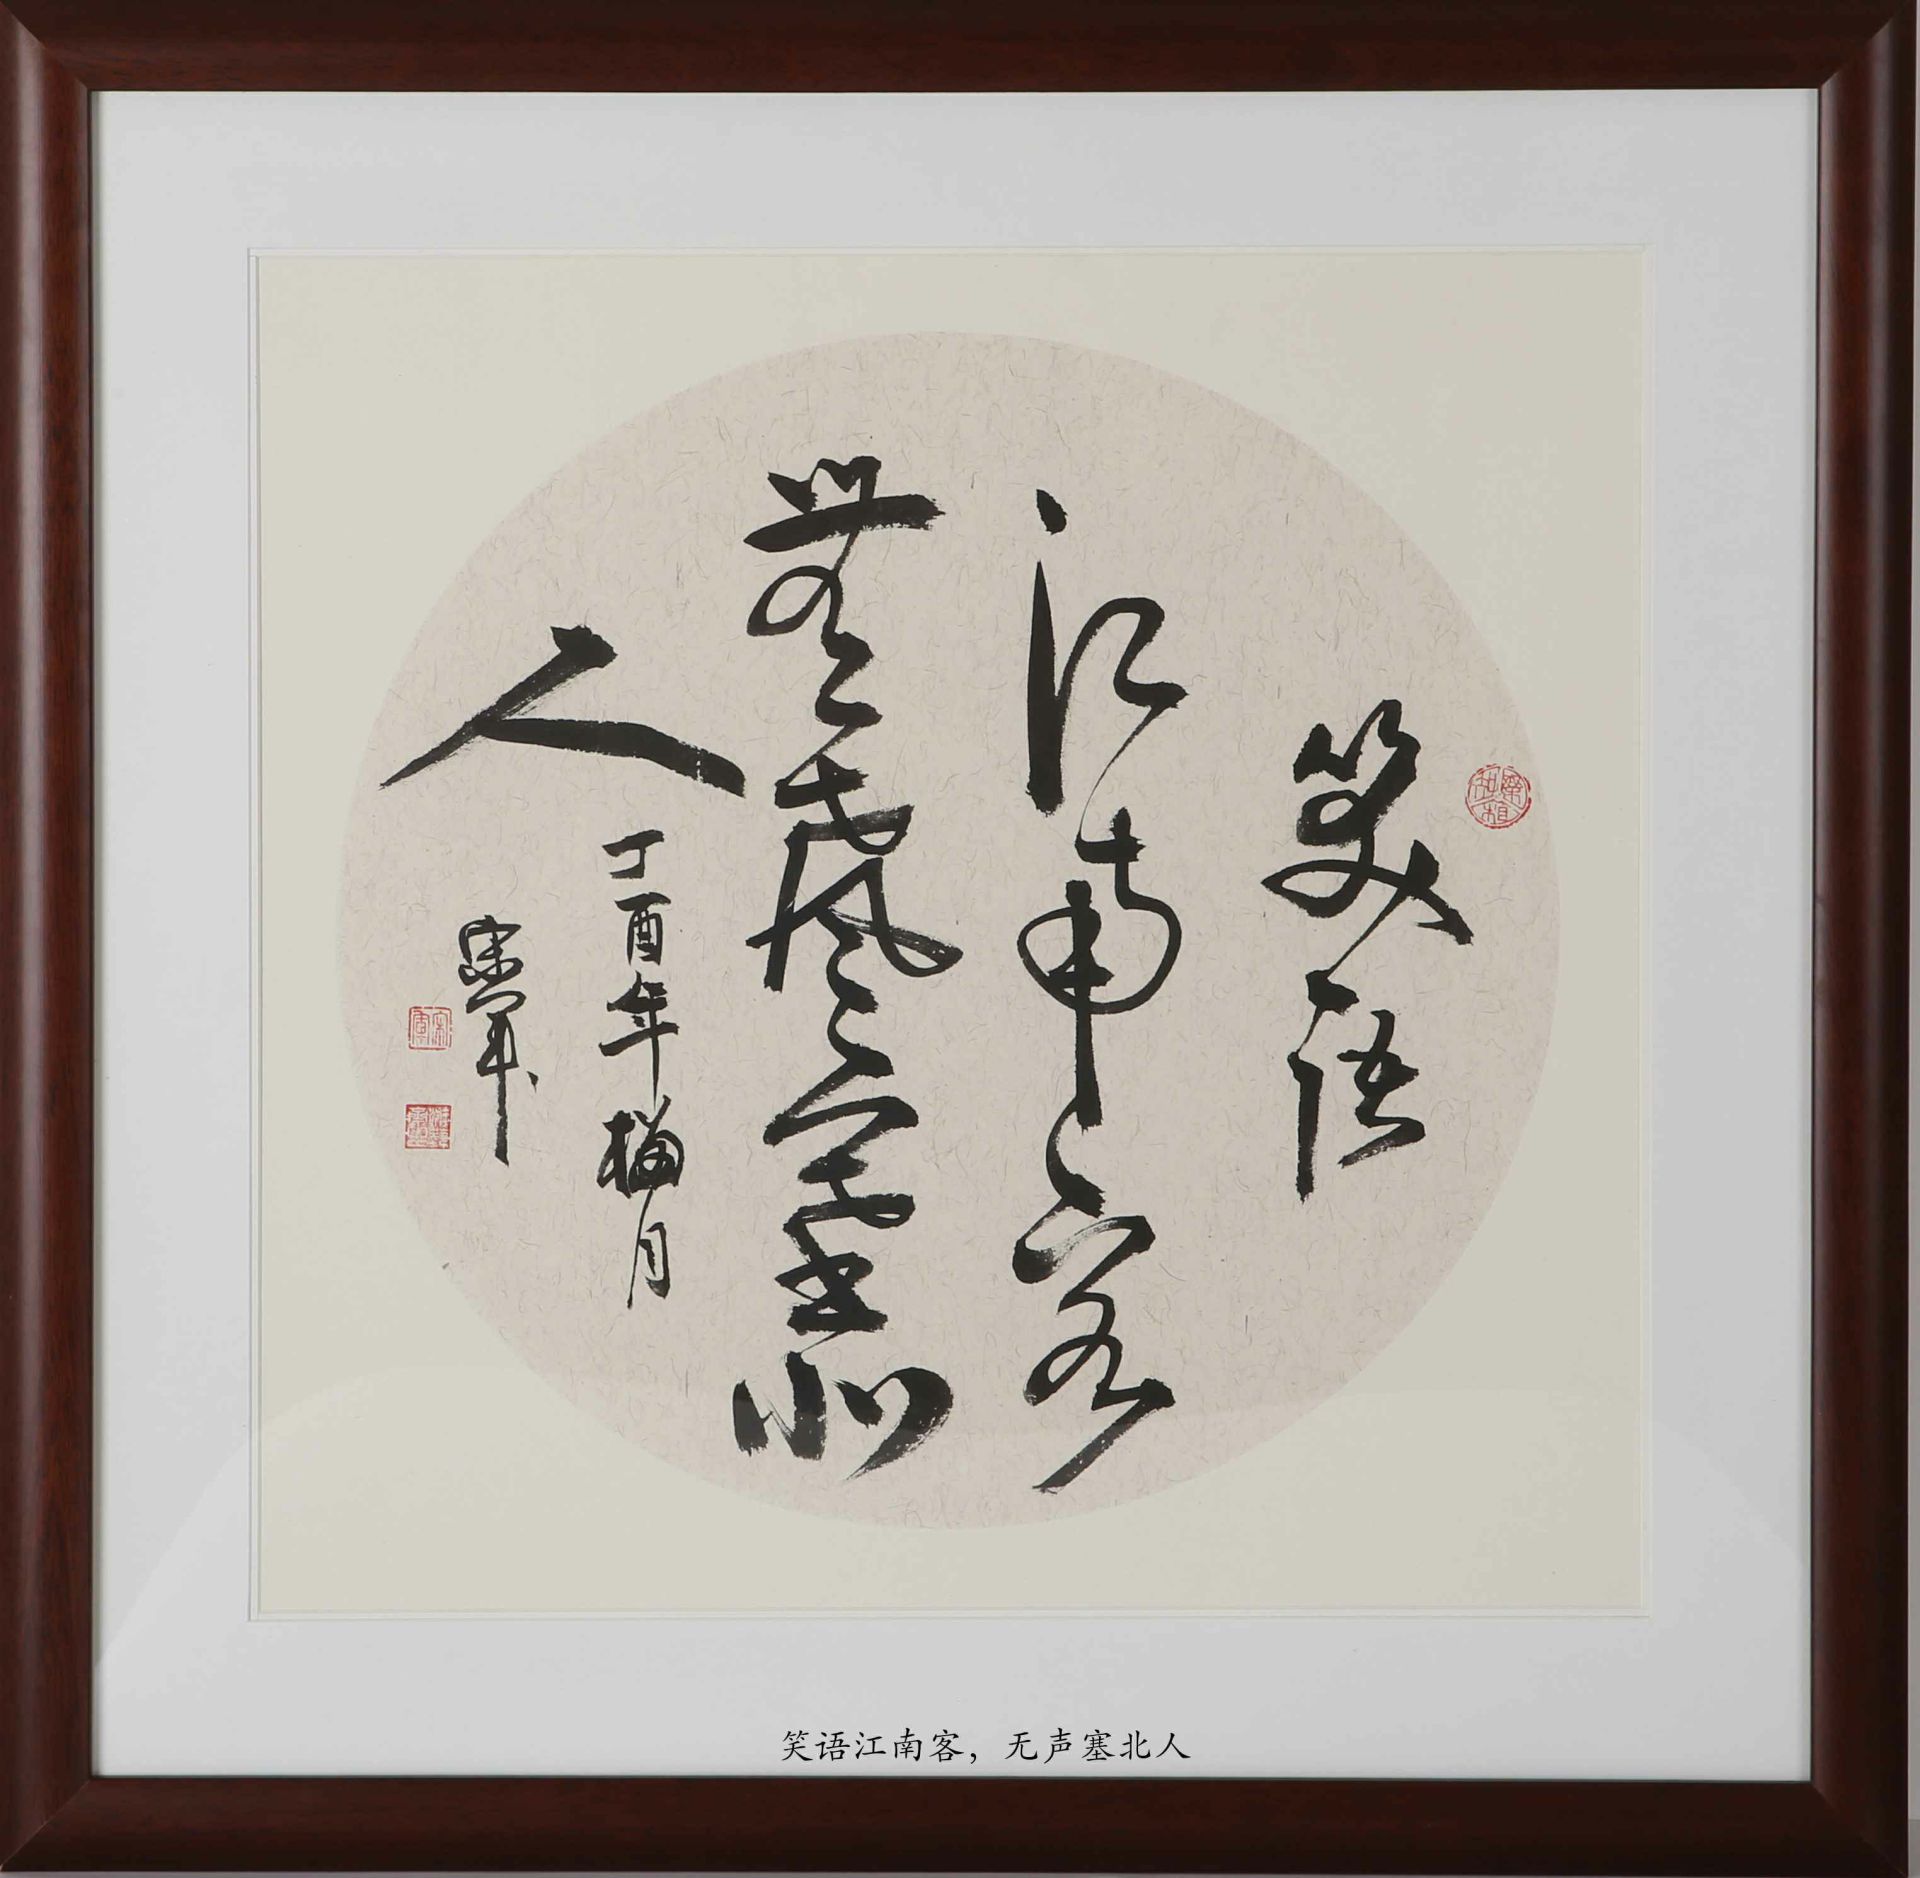 笑语
江南客
無聲塞北
人
丁酉年梅月
笑语江南客，无声塞北人